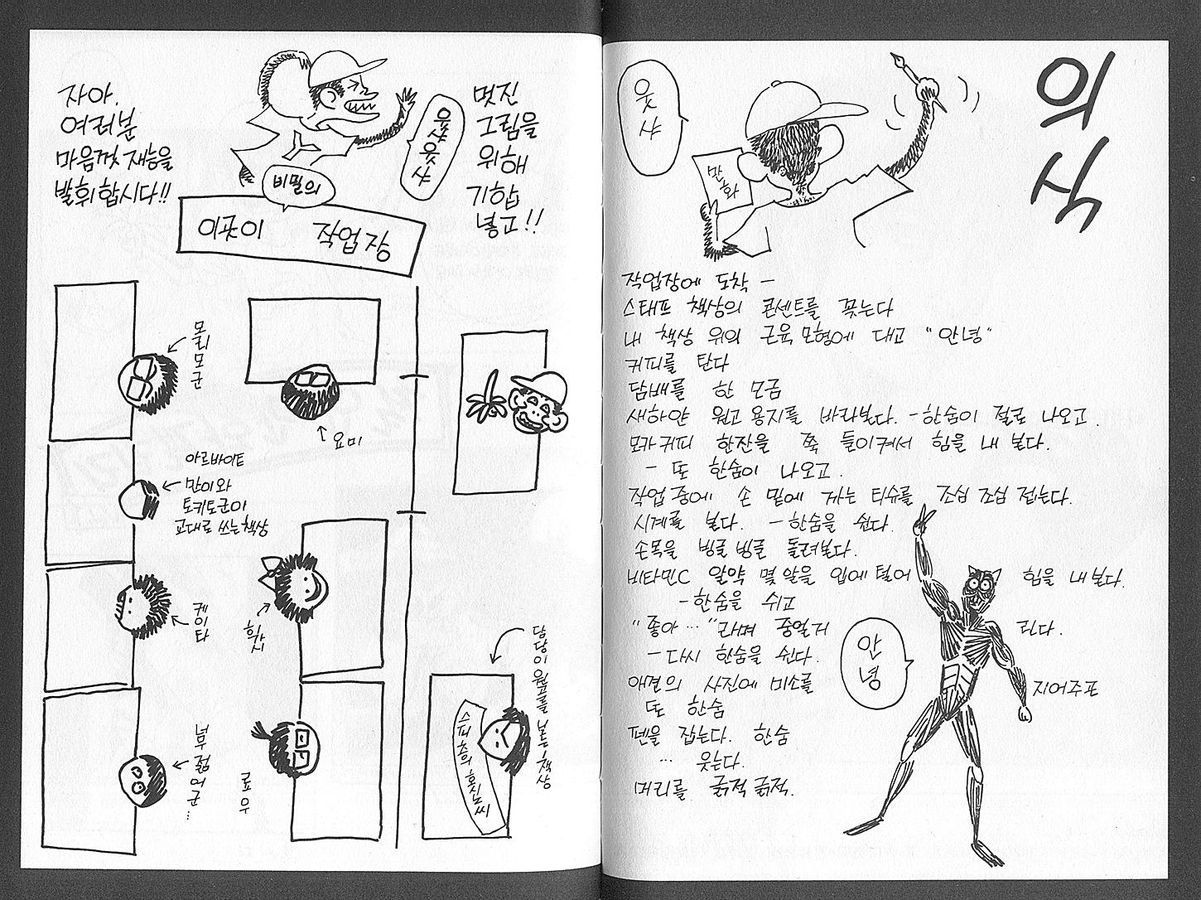 자아,
여러분
마음껏 재능을
발휘합시다!!
읏샤읏샤
멋진
그림을
위해
기합
넣고!!
비밀의
이곳이 작업장
모리모군
요미
아르바이트
만이와
토키도군이
교대로 쓰는 책상
케이타
핫시
료우
담당이 원고를 보는 책상
의식
읏샤
만화
작업장에 도착 —
스태프 책상의 콘센트를 꽂는다
내 책상 위의 근육모형에 대고 "안녕"
커피를 탄다
담배를 한 모금
새하얀 원고용지를 바라본다. - 한숨이 절로 나오고.
모카커피 한잔을 쭉 들이켜서 힘을 내 본다.
- 또 한숨이 나오고.
작업 중에 손 밑에 까는 티슈를 조심 조심 접는다.
시계를 본다. - 한숨을 쉰다.
손목을 빙글빙글 돌려본다.
비타민C 알약 몇 알을 입에 털어 힘을 내본다.
- 한숨을 쉬고
"좋아…"라며 중얼거린다.
- 다시 한숨을 쉰다.
안녕
애견의 사진에 미소를 지어주고
또 한숨
펜을 잡는다. 한숨
… 웃는다.
머리를 긁적긁적.